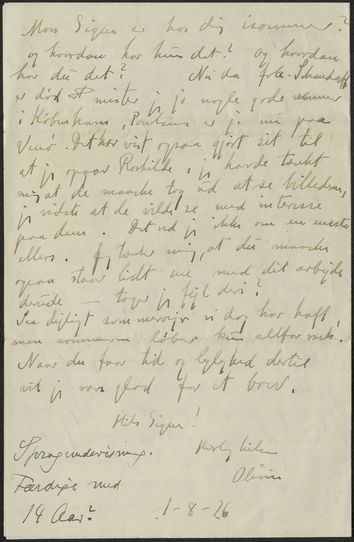 Mon Sigun er hos dig isommer?
og hvordan har hun det? og hvordan
har du det? Nu da frk.
er død mister jeg jo nogle gode venner
i København, er jo nu paa
Det har vist ogsaa gjort sit til
at jeg opgav Roskilde, jeg havde tænkt
mig at de maaske tog ud at se billederne,
jeg vidste at de vilde se med interesse
paa dem. Det ved jeg ikke om en eneste
ellers. Jeg tænker mig, at du maaske
ogsaa staar lidt ene med dit arbejde
derude — tager jeg fejl deri?
Saa dejligt sommervejr vi dog har haft,
men sommeren løber kun altfor rask.
Naar du faar tid og lejlighed dertil
vil jeg være glad for et brev.
Hils Sigun!
Sprogundervisning.
Færdige med
14 Aar?
Hilsen
1-8-26